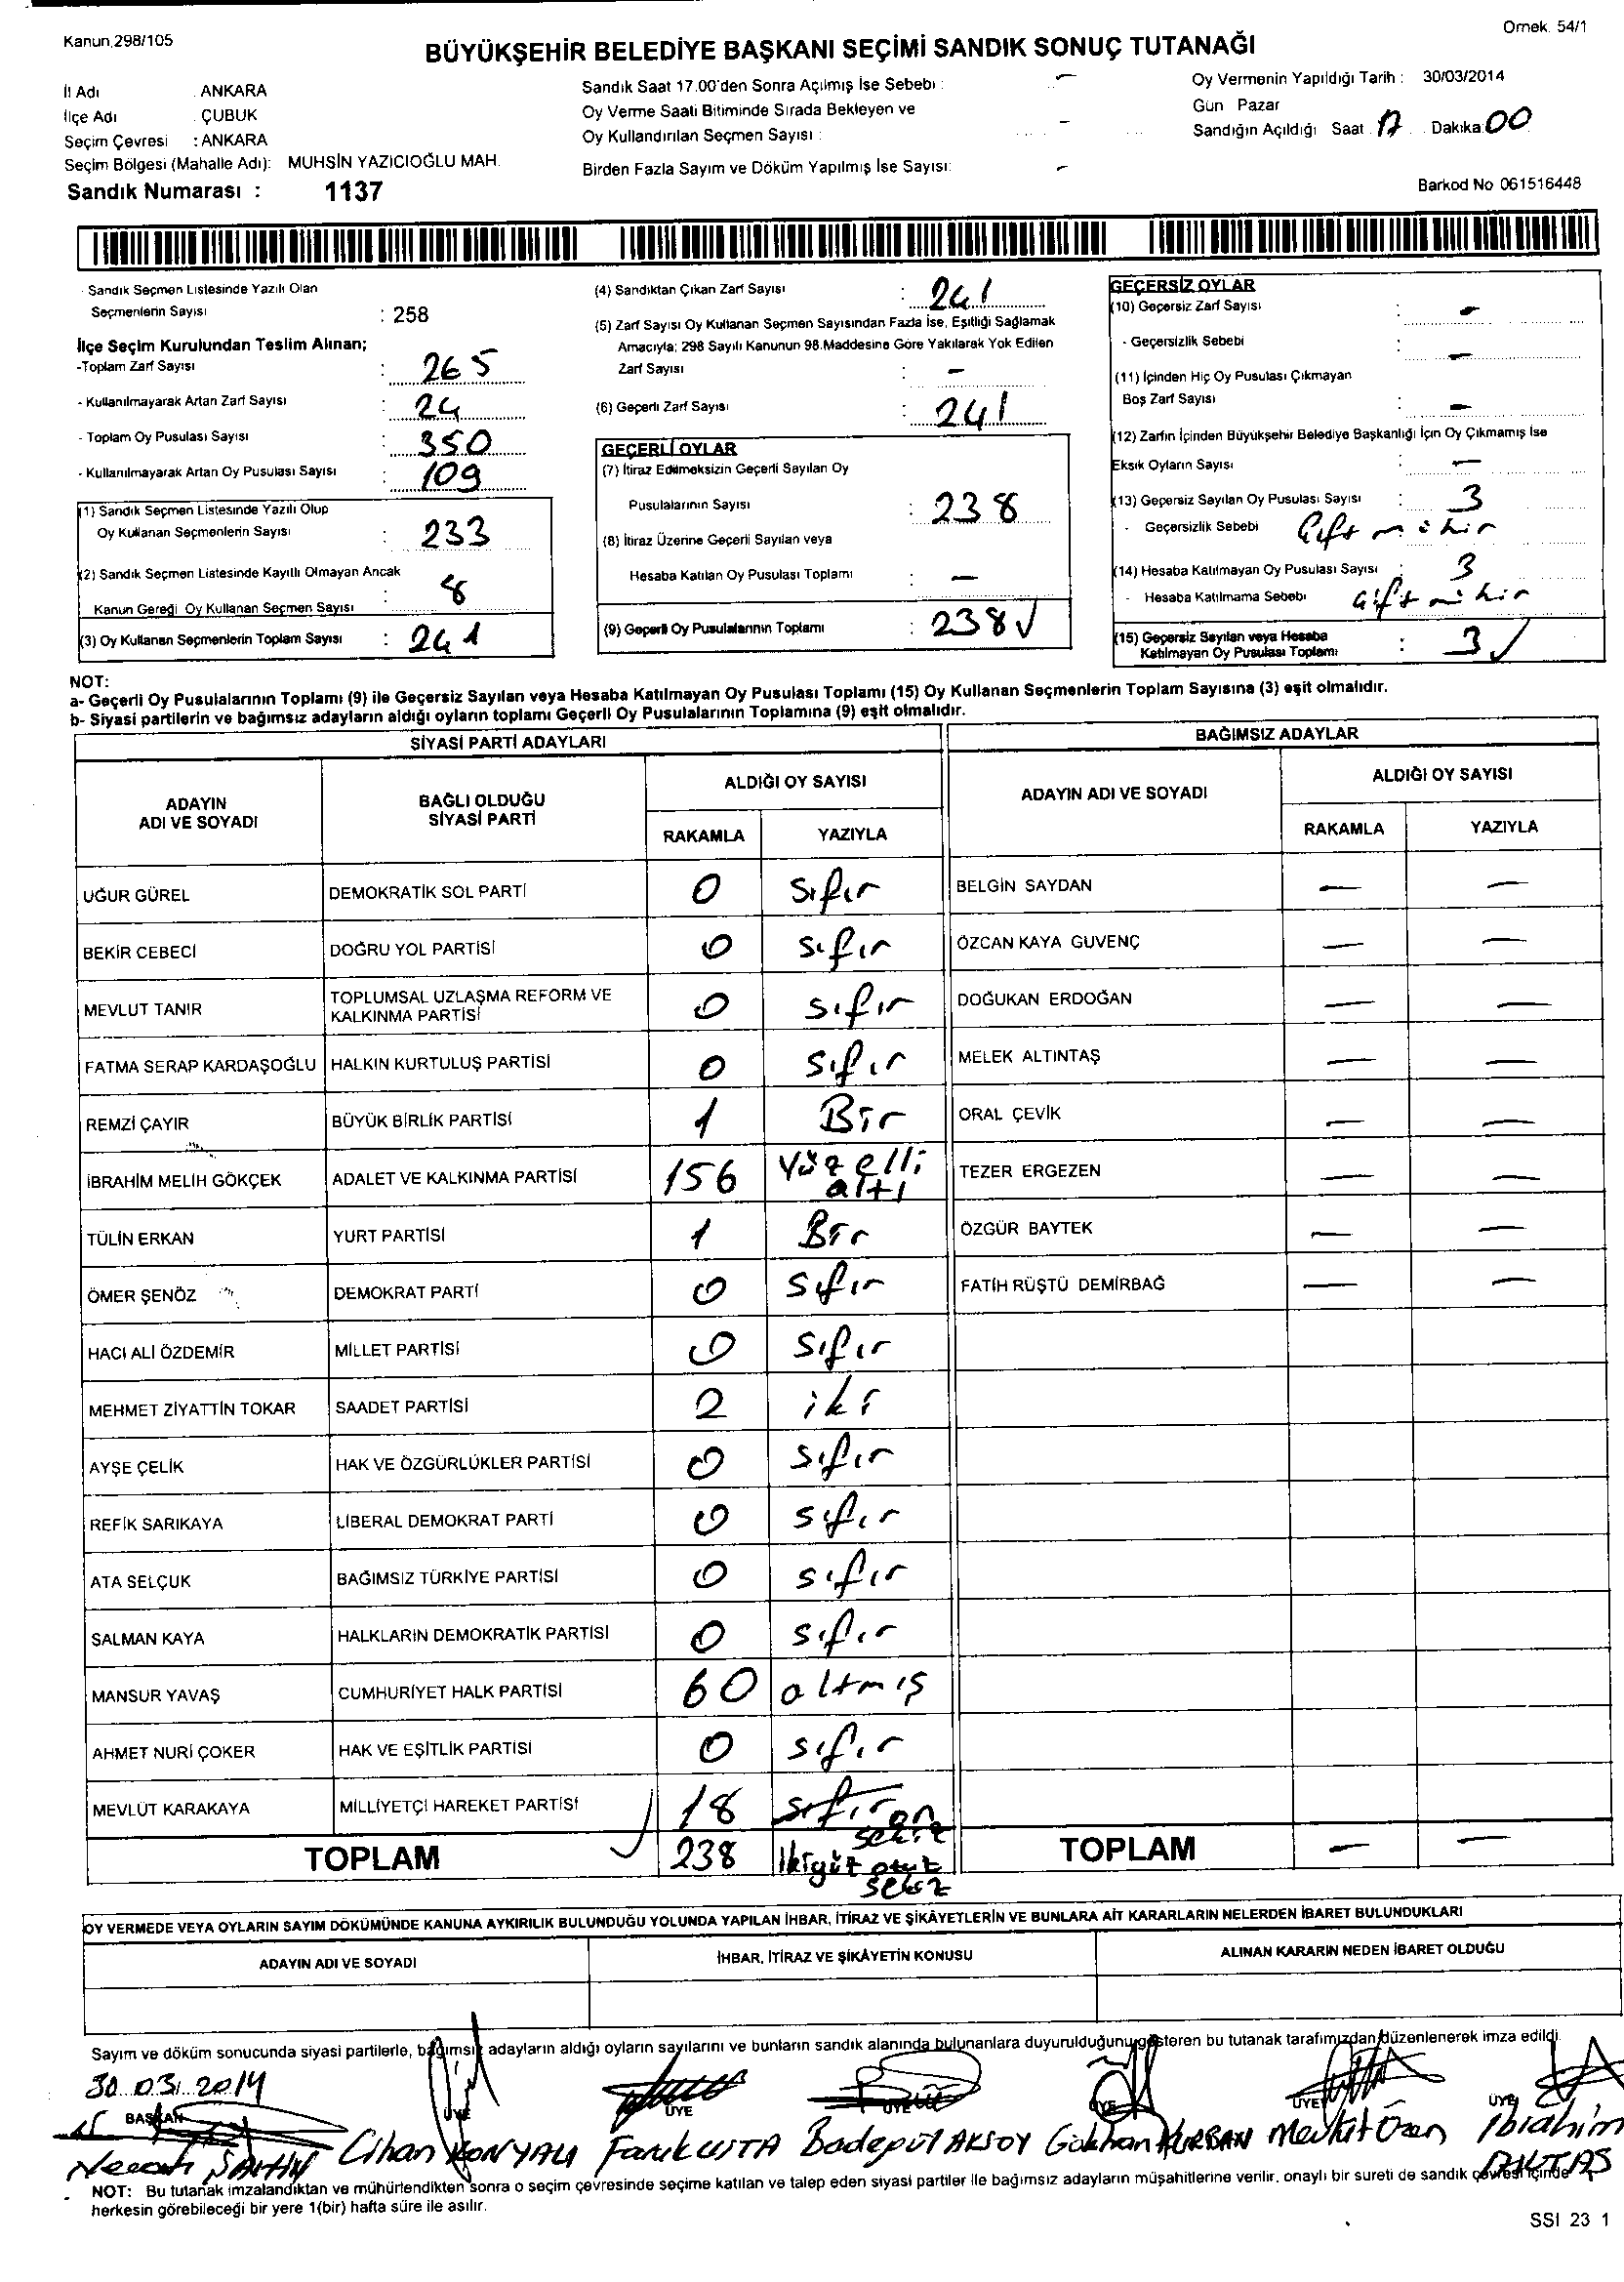 Kanun 298/105
Örnek. 54/1
BÜYÜKŞEHİR BELEDİYE BAŞKANI SEÇİMİ SANDIK SONUÇ TUTANAĞI
İl Adı : ANKARA
İlçe Adı : ÇUBUK
Seçim Çevresi : ANKARA
Seçim Bölgesi (Mahalle Adı): MUHSİN YAZICIOĞLU MAH.
Sandık Numarası : 1137
Sandık Saat 17.00'den Sonra Açılmış İse Sebebi : -
Oy Verme Saati Bitiminde Sırada Bekleyen ve
Oy Kullandırılan Seçmen Sayısı : -
Birden Fazla Sayım ve Döküm Yapılmış İse Sayısı: -
Oy Vermenin Yapıldığı Tarih : 30/03/2014
Gün Pazar
Sandığın Açıldığı Saat 17 Dakika 00
Barkod No 061516448
- Sandık Seçmen Listesinde Yazılı Olan
Seçmenlerin Sayısı : 258
İlçe Seçim Kurulundan Teslim Alınan;
-Toplam Zarf Sayısı : 265
- Kullanılmayarak Artan Zarf Sayısı : 24
- Toplam Oy Pusulası Sayısı : 350
- Kullanılmayarak Artan Oy Pusulası Sayısı : 109
(1) Sandık Seçmen Listesinde Yazılı Olup
Oy Kullanan Seçmenlerin Sayısı : 233
(2) Sandık Seçmen Listesinde Kayıtlı Olmayan Ancak
Kanun Gereği Oy Kullanan Seçmen Sayısı : 8
(3) Oy Kullanan Seçmenlerin Toplam Sayısı : 241
(4) Sandıktan Çıkan Zarf Sayısı : 241
(5) Zarf Sayısı Oy Kullanan Seçmen Sayısından Fazla İse, Eşitliği Sağlamak
Amacıyla; 298 Sayılı Kanunun 98.Maddesine Göre Yakılarak Yok Edilen
Zarf Sayısı : -
(6) Geçerli Zarf Sayısı : 241
GEÇERLİ OYLAR
(7) İtiraz Edilmeksizin Geçerli Sayılan Oy
Pusulalarının Sayısı : 238
(8) İtiraz Üzerine Geçerli Sayılan veya
Hesaba Katılan Oy Pusulası Toplamı : -
(9) Geçerli Oy Pusulalarının Toplamı : 238 ✓
GEÇERSİZ OYLAR
(10) Geçersiz Zarf Sayısı : -
- Geçersizlik Sebebi : -
(11) İçinden Hiç Oy Pusulası Çıkmayan
Boş Zarf Sayısı : -
(12) Zarfın İçinden Büyükşehir Belediye Başkanlığı İçin Oy Çıkmamış İse
Eksik Oyların Sayısı : -
(13) Geçersiz Sayılan Oy Pusulası Sayısı : 3
- Geçersizlik Sebebi Çift mühür
(14) Hesaba Katılmayan Oy Pusulası Sayısı : 3
- Hesaba Katılmama Sebebi Çift mühür
(15) Geçersiz Sayılan veya Hesaba
Katılmayan Oy Pusulası Toplamı : 3 ✓
NOT:
a- Geçerli Oy Pusulalarının Toplamı (9) ile Geçersiz Sayılan veya Hesaba Katılmayan Oy Pusulası Toplamı (15) Oy Kullanan Seçmenlerin Toplam Sayısına (3) eşit olmalıdır.
b- Siyasi partilerin ve bağımsız adayların aldığı oyların toplamı Geçerli Oy Pusulalarının Toplamına (9) eşit olmalıdır.
SİYASİ PARTİ ADAYLARI
ADAYIN ADI VE SOYADI BAĞLI OLDUĞU SİYASİ PARTİ ALDIĞI OY SAYISI
RAKAMLA YAZIYLA
UĞUR GÜREL DEMOKRATİK SOL PARTİ 0 sıfır
BEKİR CEBECİ DOĞRU YOL PARTİSİ 0 sıfır
MEVLUT TANIR TOPLUMSAL UZLAŞMA REFORM VE KALKINMA PARTİSİ 0 sıfır
FATMA SERAP KARDAŞOĞLU HALKIN KURTULUŞ PARTİSİ 0 sıfır
REMZİ ÇAYIR BÜYÜK BİRLİK PARTİSİ 1 Bir
İBRAHİM MELİH GÖKÇEK ADALET VE KALKINMA PARTİSİ 156 Yüzelli altı
TÜLİN ERKAN YURT PARTİSİ 1 Bir
ÖMER ŞENÖZ DEMOKRAT PARTİ 0 sıfır
HACI ALİ ÖZDEMİR MİLLET PARTİSİ 0 sıfır
MEHMET ZİYATTİN TOKAR SAADET PARTİSİ 2 iki
AYŞE ÇELİK HAK VE ÖZGÜRLÜKLER PARTİSİ 0 sıfır
REFİK SARIKAYA LİBERAL DEMOKRAT PARTİ 0 sıfır
ATA SELÇUK BAĞIMSIZ TÜRKİYE PARTİSİ 0 sıfır
SALMAN KAYA HALKLARIN DEMOKRATİK PARTİSİ 0 sıfır
MANSUR YAVAŞ CUMHURİYET HALK PARTİSİ 60 altmış
AHMET NURİ ÇOKER HAK VE EŞİTLİK PARTİSİ 0 sıfır
MEVLÜT KARAKAYA MİLLİYETÇİ HAREKET PARTİSİ 18 sıfır on sekiz
TOPLAM ✓ 238 İkiyüz otuz sekiz
BAĞIMSIZ ADAYLAR
ADAYIN ADI VE SOYADI ALDIĞI OY SAYISI
RAKAMLA YAZIYLA
BELGİN SAYDAN - -
ÖZCAN KAYA GUVENÇ - -
DOĞUKAN ERDOĞAN - -
MELEK ALTINTAŞ - -
ORAL ÇEVİK - -
TEZER ERGEZEN - -
ÖZGÜR BAYTEK - -
FATİH RÜŞTÜ DEMİRBAĞ - -
TOPLAM - -
OY VERMEDE VEYA OYLARIN SAYIM DÖKÜMÜNDE KANUNA AYKIRILIK BULUNDUĞU YOLUNDA YAPILAN İHBAR, İTİRAZ VE ŞİKÂYETLERİN VE BUNLARA AİT KARARLARIN NELERDEN İBARET BULUNDUKLARI
ADAYIN ADI VE SOYADI İHBAR, İTİRAZ VE ŞİKÂYETİN KONUSU ALINAN KARARIN NEDEN İBARET OLDUĞU
Sayım ve döküm sonucunda siyasi partilerle, bağımsız adayların aldığı oyların sayılarını ve bunların sandık alanında bulunanlara duyurulduğunu gösteren bu tutanak tarafımızdan düzenlenerek imza edildi.
30.03.2014
BAŞKAN ÜYE ÜYE ÜYE ÜYE ÜYE ÜYE
Necati ŞAHİN Cihan KONYALI Faruk USTA Badegül AKSOY Gökhan KURBAN Mevlüt Özen İbrahim AKTAŞ
NOT: Bu tutanak imzalandıktan ve mühürlendikten sonra o seçim çevresinde seçime katılan ve talep eden siyasi partiler ile bağımsız adayların müşahitlerine verilir, onaylı bir sureti de sandık çevresi içinde
herkesin görebileceği bir yere 1(bir) hafta süre ile asılır.
SSI 23 1